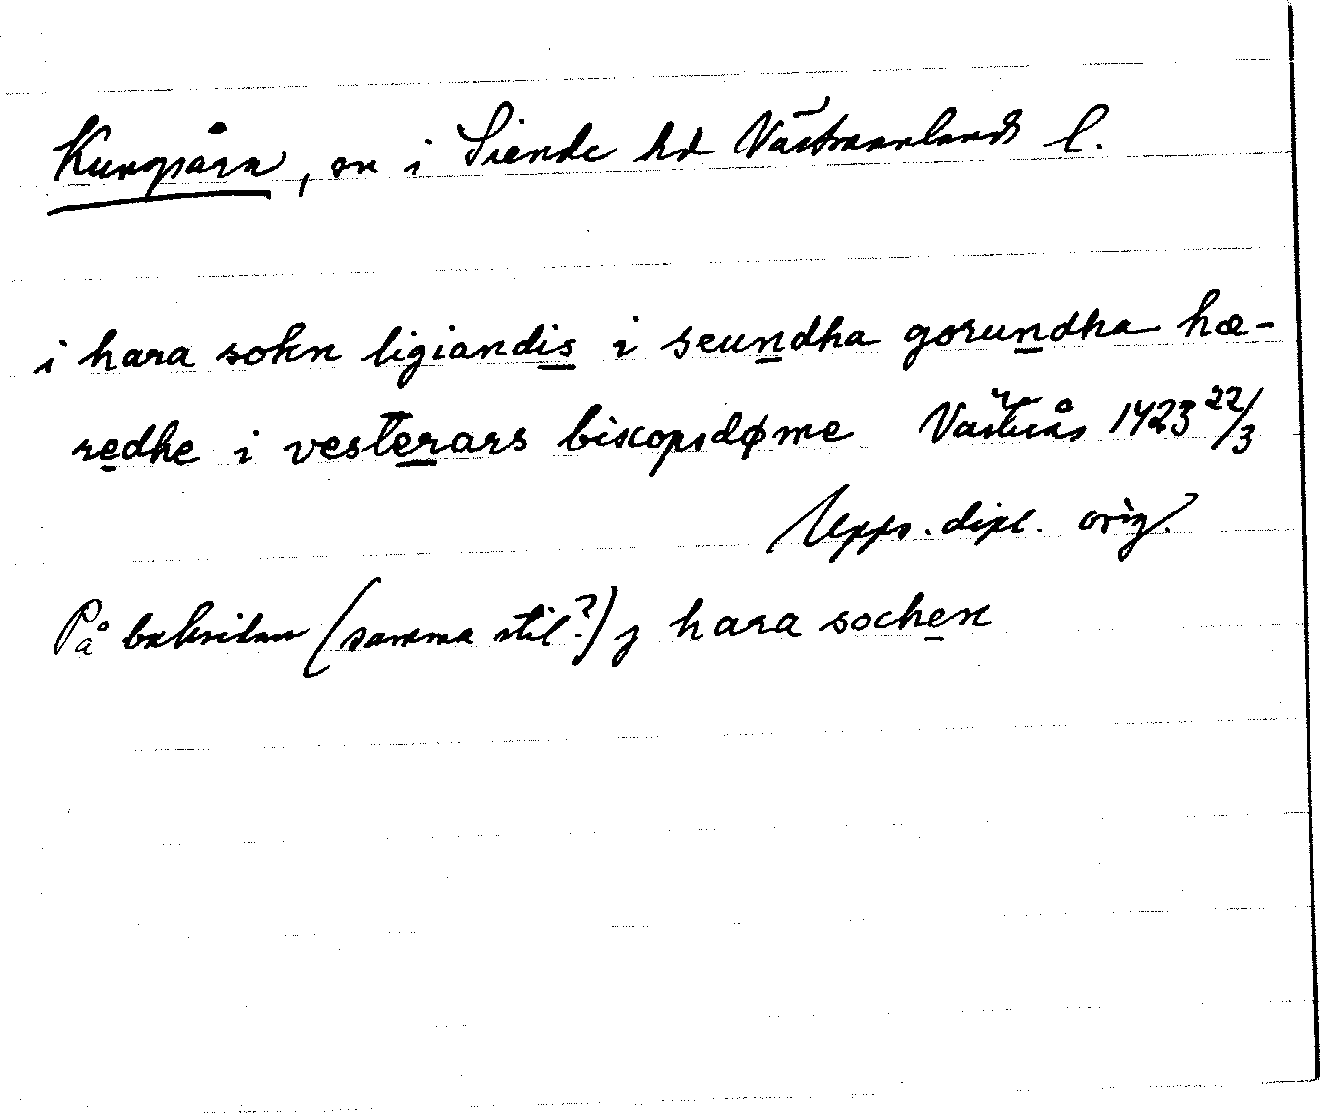 Kungsåra, sn i Siende hd Västmanlands l.
i hara sokn ligiandis i seundha gorundha hæ-
redhe i vesterars biscopsdøme Västerås 1423 22/3
Upps. dipl. orig.
På baksidan (samma stil?) j hara sochen